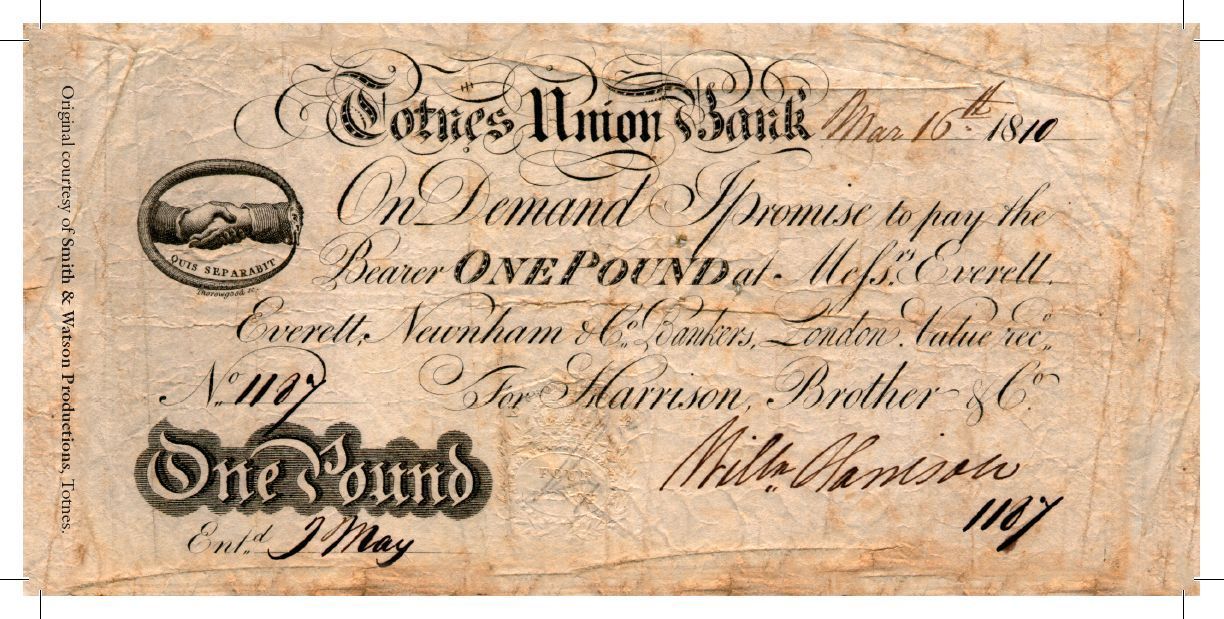 Totnes Union Bank Mar 16th 1810
On Demand I promise to pay the
Bearer ONE POUND at Messrs Everett,
Everett, Newnham & Co. Bankers, London. Value recd.
No. 1187 For Harrison, Brother & Co.
QUIS SEPARABIT
Thorowgood sc.
One Pound
Willm Harrison
1187
Entd. J May
Original courtesy of Smith & Watson Productions, Totnes.